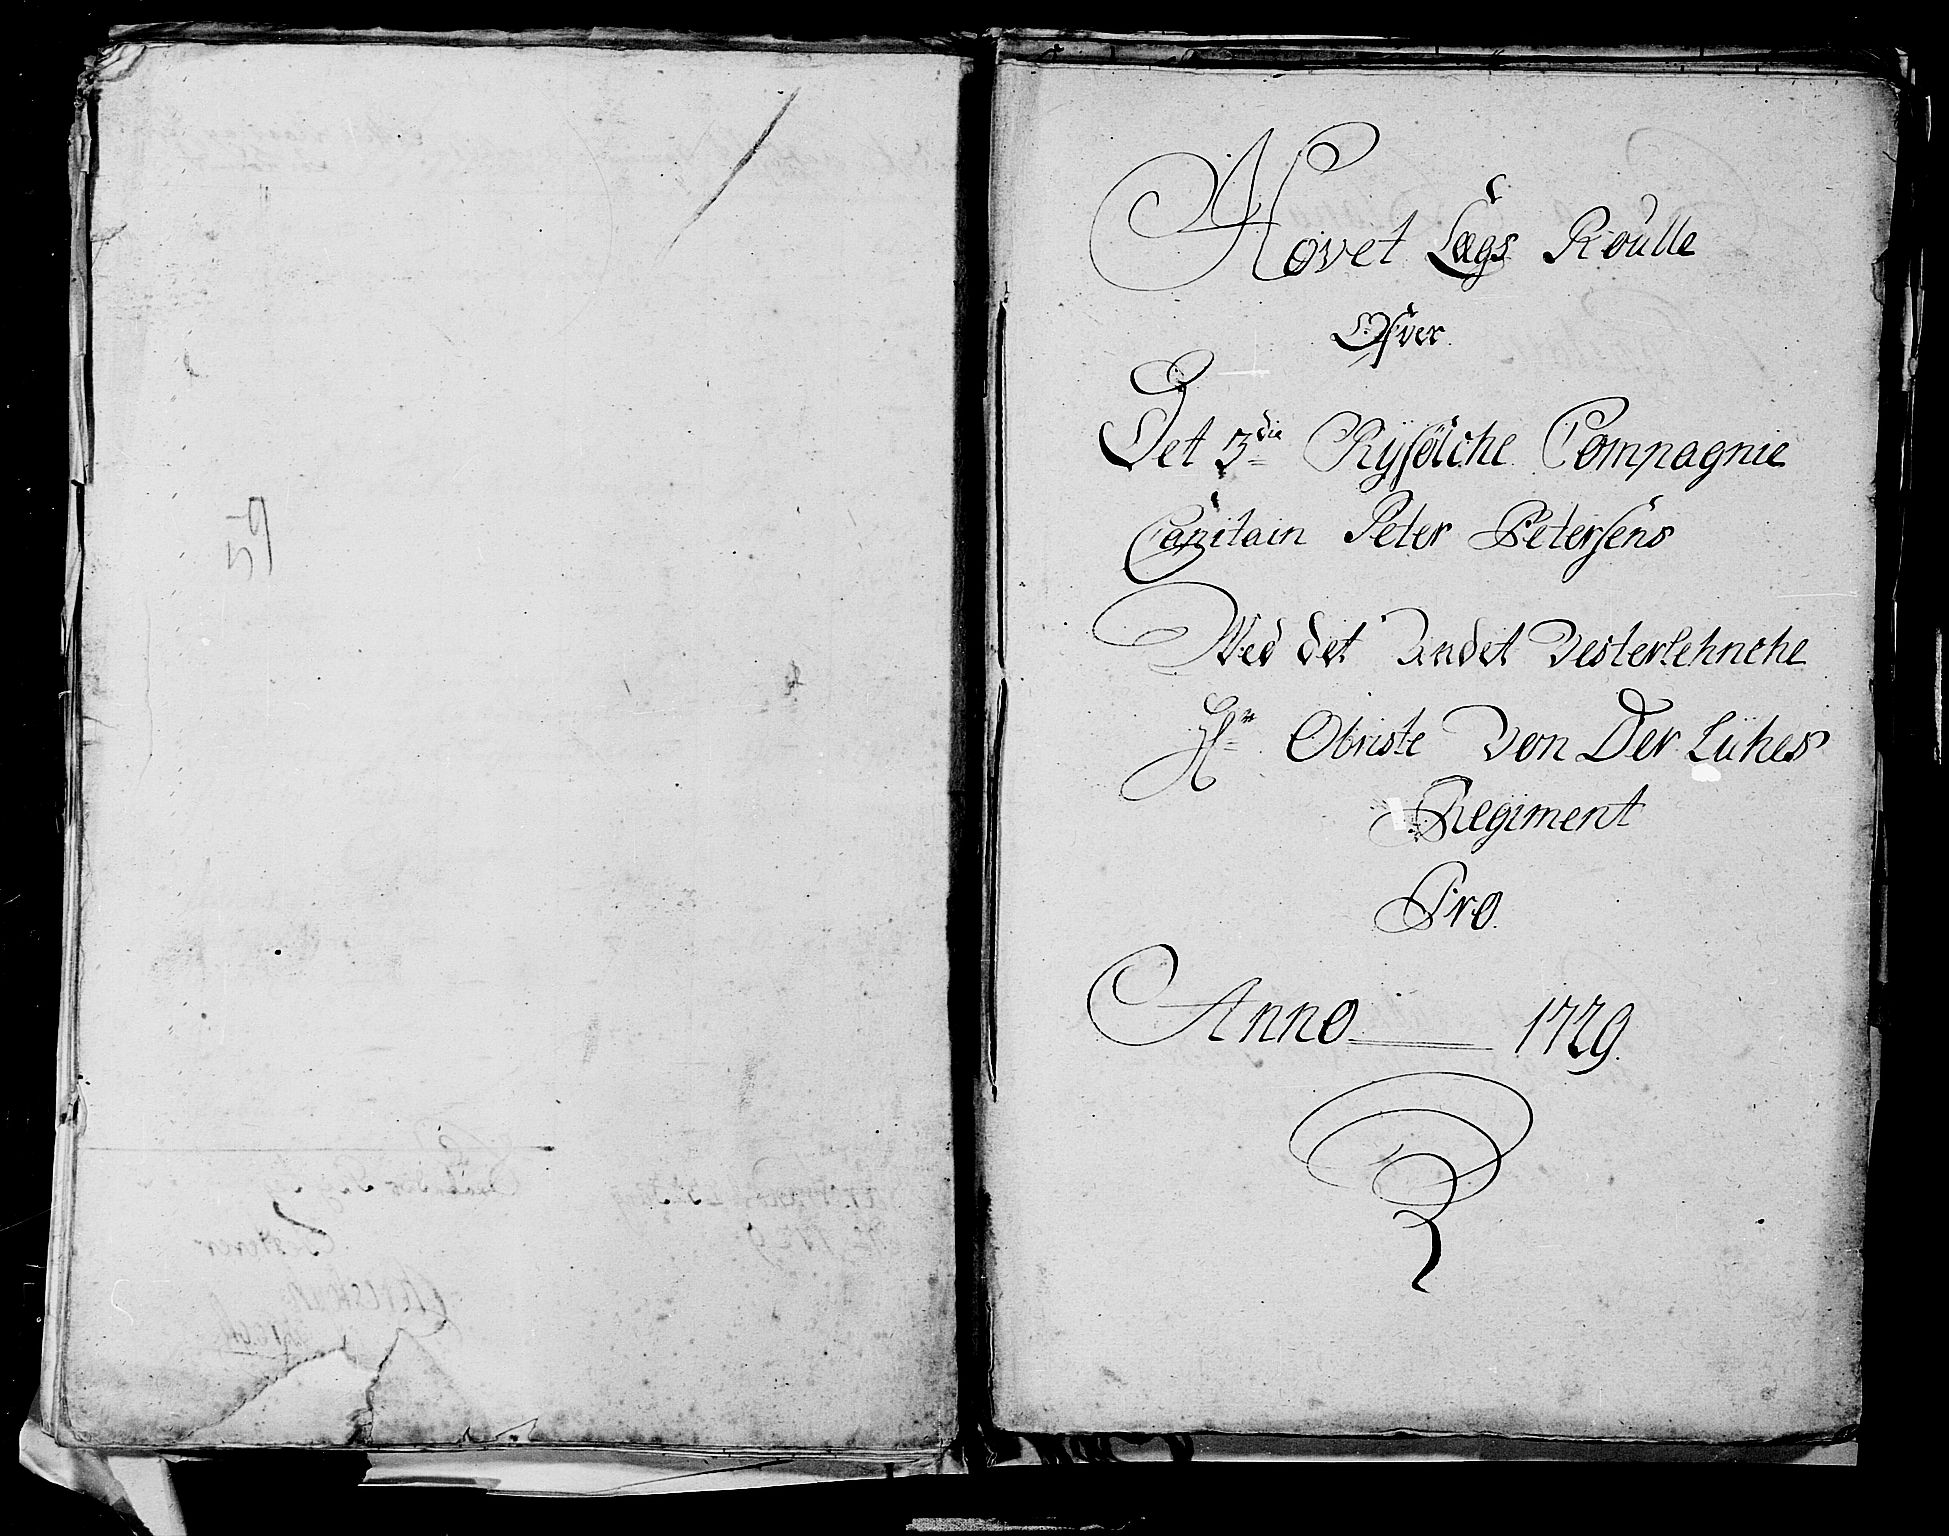 59
Hovet Lægs Roulle
Ofver
Det 3die Ryfölche Compagnie
Capitain Peter Petersens
Ved det Andet Vesterlehnche
Hr Obriste Von Der Lühes
Regiment
Pro
Anno 1729